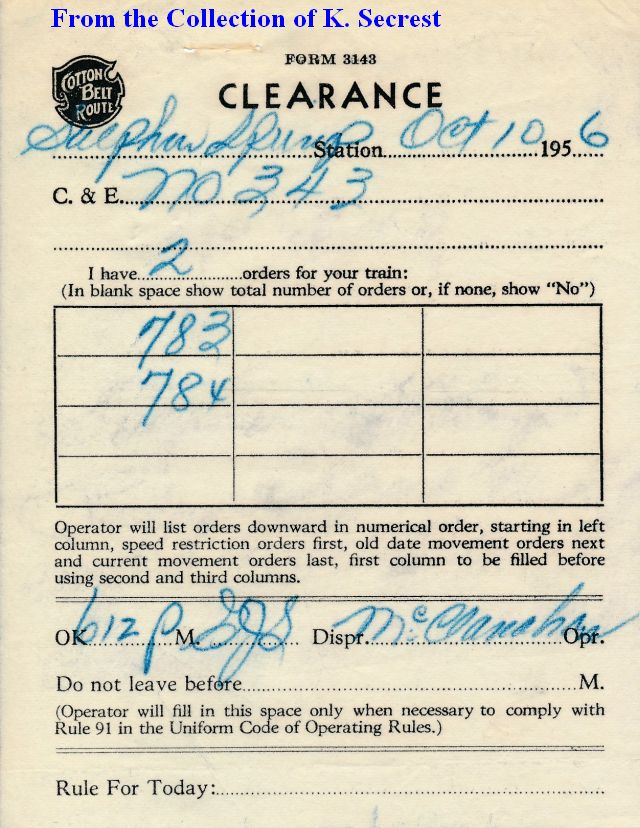 From the Collection of K. Secrest
FORM 3143
COTTON BELT ROUTE
CLEARANCE
Sulphur Springs Station Oct 10 1956
C. & E. No 343
I have 2 orders for your train:
(In blank space show total number of orders or, if none, show "No")
783
784
Operator will list orders downward in numerical order, starting in left
column, speed restriction orders first, old date movement orders next
and current movement orders last, first column to be filled before
using second and third columns.
OK 612 P M. Dispr. McClanahan Opr.
Do not leave before M.
(Operator will fill in this space only when necessary to comply with
Rule 91 in the Uniform Code of Operating Rules.)
Rule For Today: